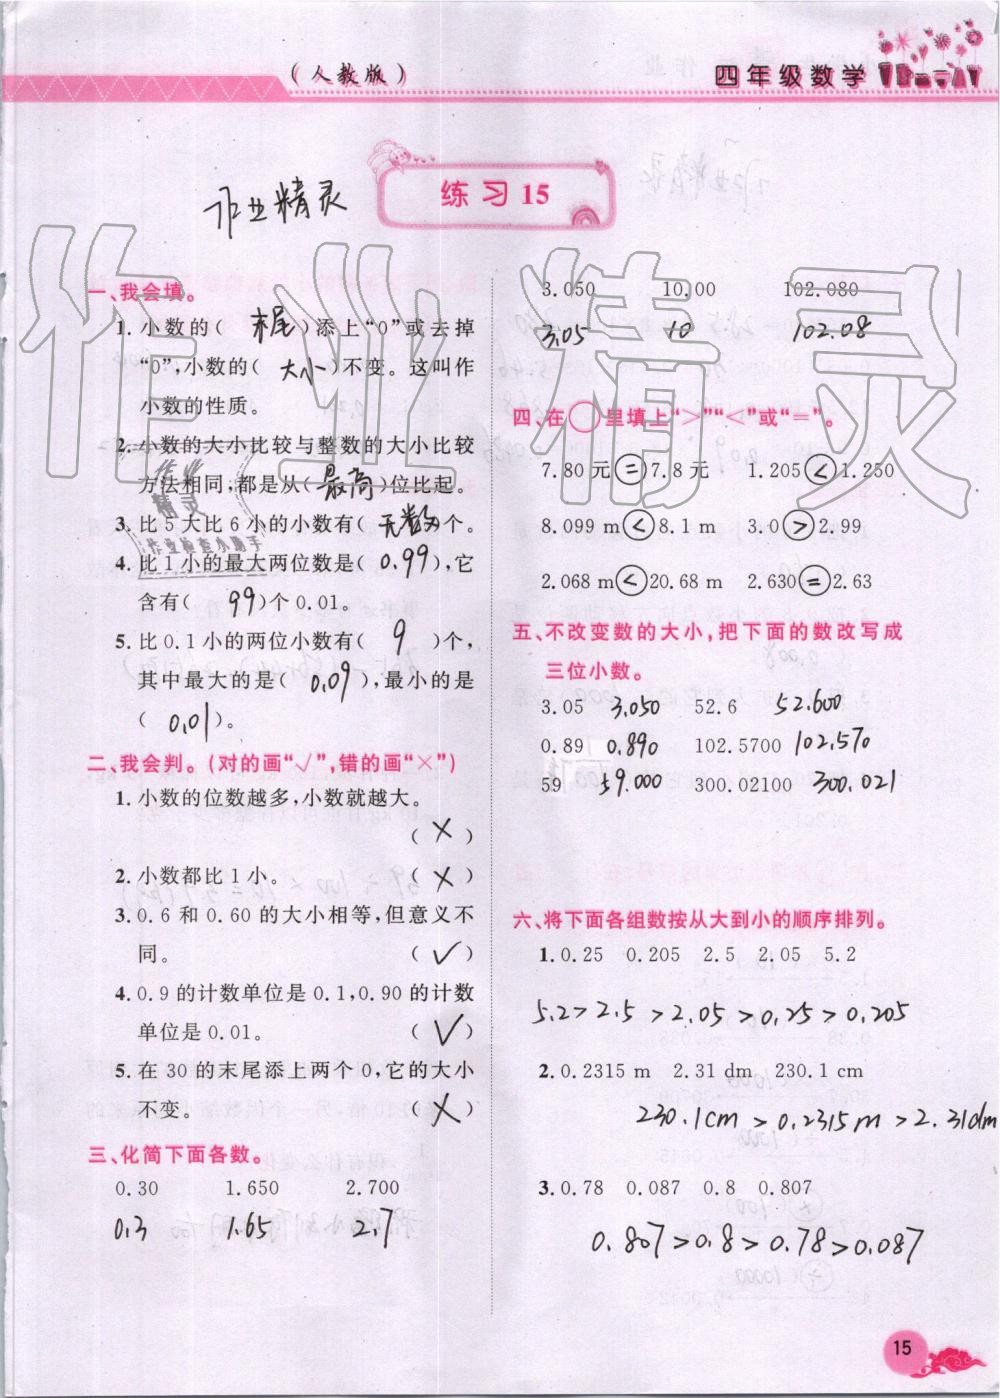 (人教版)
四年级数学
练习15
作业精灵
一、我会填。
1. 小数的( 末尾 )添上“0”或去掉
“0”,小数的( 大小 )不变。这叫作
小数的性质。
2. 小数的大小比较与整数的大小比较
方法相同,都是从( 最高 )位比起。
3. 比5大比6小的小数有( 无数 )个。
4. 比1小的最大两位数是( 0.99 ),它
含有( 99 )个0.01。
5. 比0.1小的两位小数有( 9 )个,
其中最大的是( 0.09 ),最小的是
( 0.01 )。
二、我会判。(对的画“√”,错的画“×”)
1. 小数的位数越多,小数就越大。
( × )
2. 小数都比1小。 ( × )
3. 0.6和0.60的大小相等,但意义不
同。 ( √ )
4. 0.9的计数单位是0.1,0.90的计数
单位是0.01。 ( √ )
5. 在30的末尾添上两个0,它的大小
不变。 ( × )
三、化简下面各数。
0.30 1.650 2.700
0.3 1.65 2.7
3.050 10.00 102.080
3.05 10 102.08
四、在○里填上“>”“<”或“=”。
7.80元=7.8元 1.205<1.250
8.099 m<8.1 m 3.0>2.99
2.068 m<20.68 m 2.630=2.63
五、不改变数的大小,把下面的数改写成
三位小数。
3.05 3.050 52.6 52.600
0.89 0.890 102.5700 102.570
59 59.000 300.02100 300.021
六、将下面各组数按从大到小的顺序排列。
1. 0.25 0.205 2.5 2.05 5.2
5.2>2.5>2.05>0.25>0.205
2. 0.2315 m 2.31 dm 230.1 cm
230.1cm>0.2315m>2.31dm
3. 0.78 0.087 0.8 0.807
0.807>0.8>0.78>0.087
15
作业精灵
作业
精灵
作业检查小助手